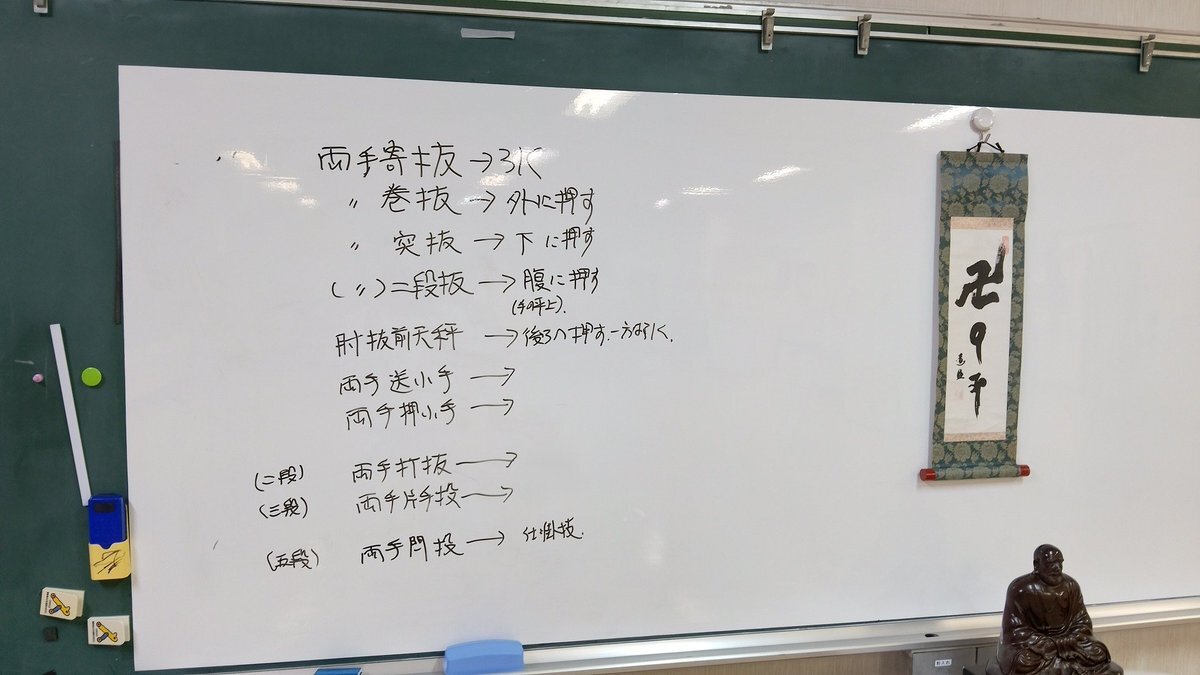 両手寄抜→引く
〃 巻抜→外に押す
〃 突抜→下に押す
(〃)二段抜→腹に押す
肘抜前天秤→後ろへ押す.一方を引く.
両手送小手→
両手押小手→
(二段) 両手打抜→
(三段) 両手片手投→
(五段) 両手閂投→仕掛技.
卍